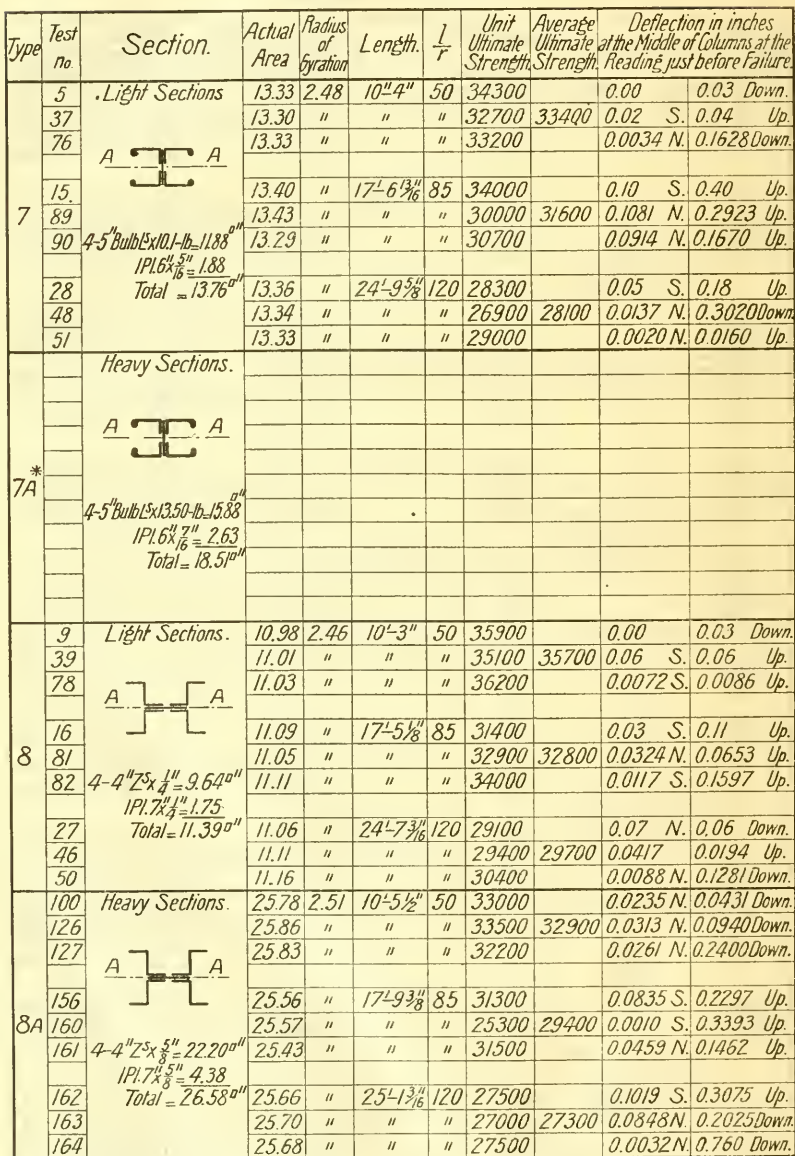 Type | Test no. | Section. | Actual Area | Radius of Gyration | Length. | l/r | Unit Ultimate Strength. | Average Ultimate Strength. | Deflection in inches at the Middle of Columns at the Reading just before Failure.
5 | Light Sections | 13.33 | 2.48 | 10"-4" | 50 | 34300 | | 0.00 | 0.03 Down.
37 | 13.30 | " | " | " | 32700 | 33400 | 0.02 S. | 0.04 Up.
76 | A A | 13.33 | " | " | " | 33200 | | 0.0034 N. | 0.1628 Down.
15. | 13.40 | " | 17'-6 13/16" | 85 | 34000 | | 0.10 S. | 0.40 Up.
7 | 89 | 13.43 | " | " | " | 30000 | 31600 | 0.1081 N. | 0.2923 Up.
90 | 4-5" Bulb Ls x 10.1-lb = 11.88□" | 13.29 | " | " | " | 30700 | | 0.0914 N. | 0.1670 Up.
1Pl. 6" x 5/16" = 1.88
28 | Total = 13.76□" | 13.36 | " | 24'-9 5/8" | 120 | 28300 | | 0.05 S. | 0.18 Up.
48 | 13.34 | " | " | " | 26900 | 28100 | 0.0137 N. | 0.3020 Down
51 | 13.33 | " | " | " | 29000 | | 0.0020 N. | 0.0160 Up.
Heavy Sections.
A A
7A*
4-5" Bulb Ls x 13.50-lb = 15.88□"
1Pl. 6" x 7/16" = 2.63
Total = 18.51□"
9 | Light Sections. | 10.98 | 2.46 | 10'-3" | 50 | 35900 | | 0.00 | 0.03 Down.
39 | 11.01 | " | " | " | 35100 | 35700 | 0.06 S. | 0.06 Up.
78 | A A | 11.03 | " | " | " | 36200 | | 0.0072 S. | 0.0086 Up.
16 | 11.09 | " | 17'-5 1/8" | 85 | 31400 | | 0.03 S. | 0.11 Up.
8 | 81 | 11.05 | " | " | " | 32900 | 32800 | 0.0324 N. | 0.0653 Up.
82 | 4-4" Zs x 1/4" = 9.64□" | 11.11 | " | " | " | 34000 | | 0.0117 S. | 0.1597 Up.
1Pl. 7" x 1/4" = 1.75
27 | Total = 11.39□" | 11.06 | " | 24'-7 3/16" | 120 | 29100 | | 0.07 N. | 0.06 Down.
46 | 11.11 | " | " | " | 29400 | 29700 | 0.0417 | 0.0194 Up.
50 | 11.16 | " | " | " | 30400 | | 0.0088 N. | 0.1281 Down.
100 | Heavy Sections. | 25.78 | 2.51 | 10'-5 1/2" | 50 | 33000 | | 0.0235 N. | 0.0431 Down.
126 | 25.86 | " | " | " | 33500 | 32900 | 0.0313 N. | 0.0940 Down.
127 | A A | 25.83 | " | " | " | 32200 | | 0.0261 N. | 0.2400 Down.
156 | 25.56 | " | 17'-9 3/8" | 85 | 31300 | | 0.0835 S. | 0.2297 Up.
8A | 160 | 25.57 | " | " | " | 25300 | 29400 | 0.0010 S. | 0.3393 Up.
161 | 4-4" Zs x 5/8" = 22.20□" | 25.43 | " | " | " | 31500 | | 0.0459 N. | 0.1462 Up.
1Pl. 7" x 5/8" = 4.38
162 | Total = 26.58□" | 25.66 | " | 25'-1 3/16" | 120 | 27500 | | 0.1019 S. | 0.3075 Up.
163 | 25.70 | " | " | " | 27000 | 27300 | 0.0848 N. | 0.2025 Down.
164 | 25.68 | " | " | " | 27500 | | 0.0032 N. | 0.760 Down.